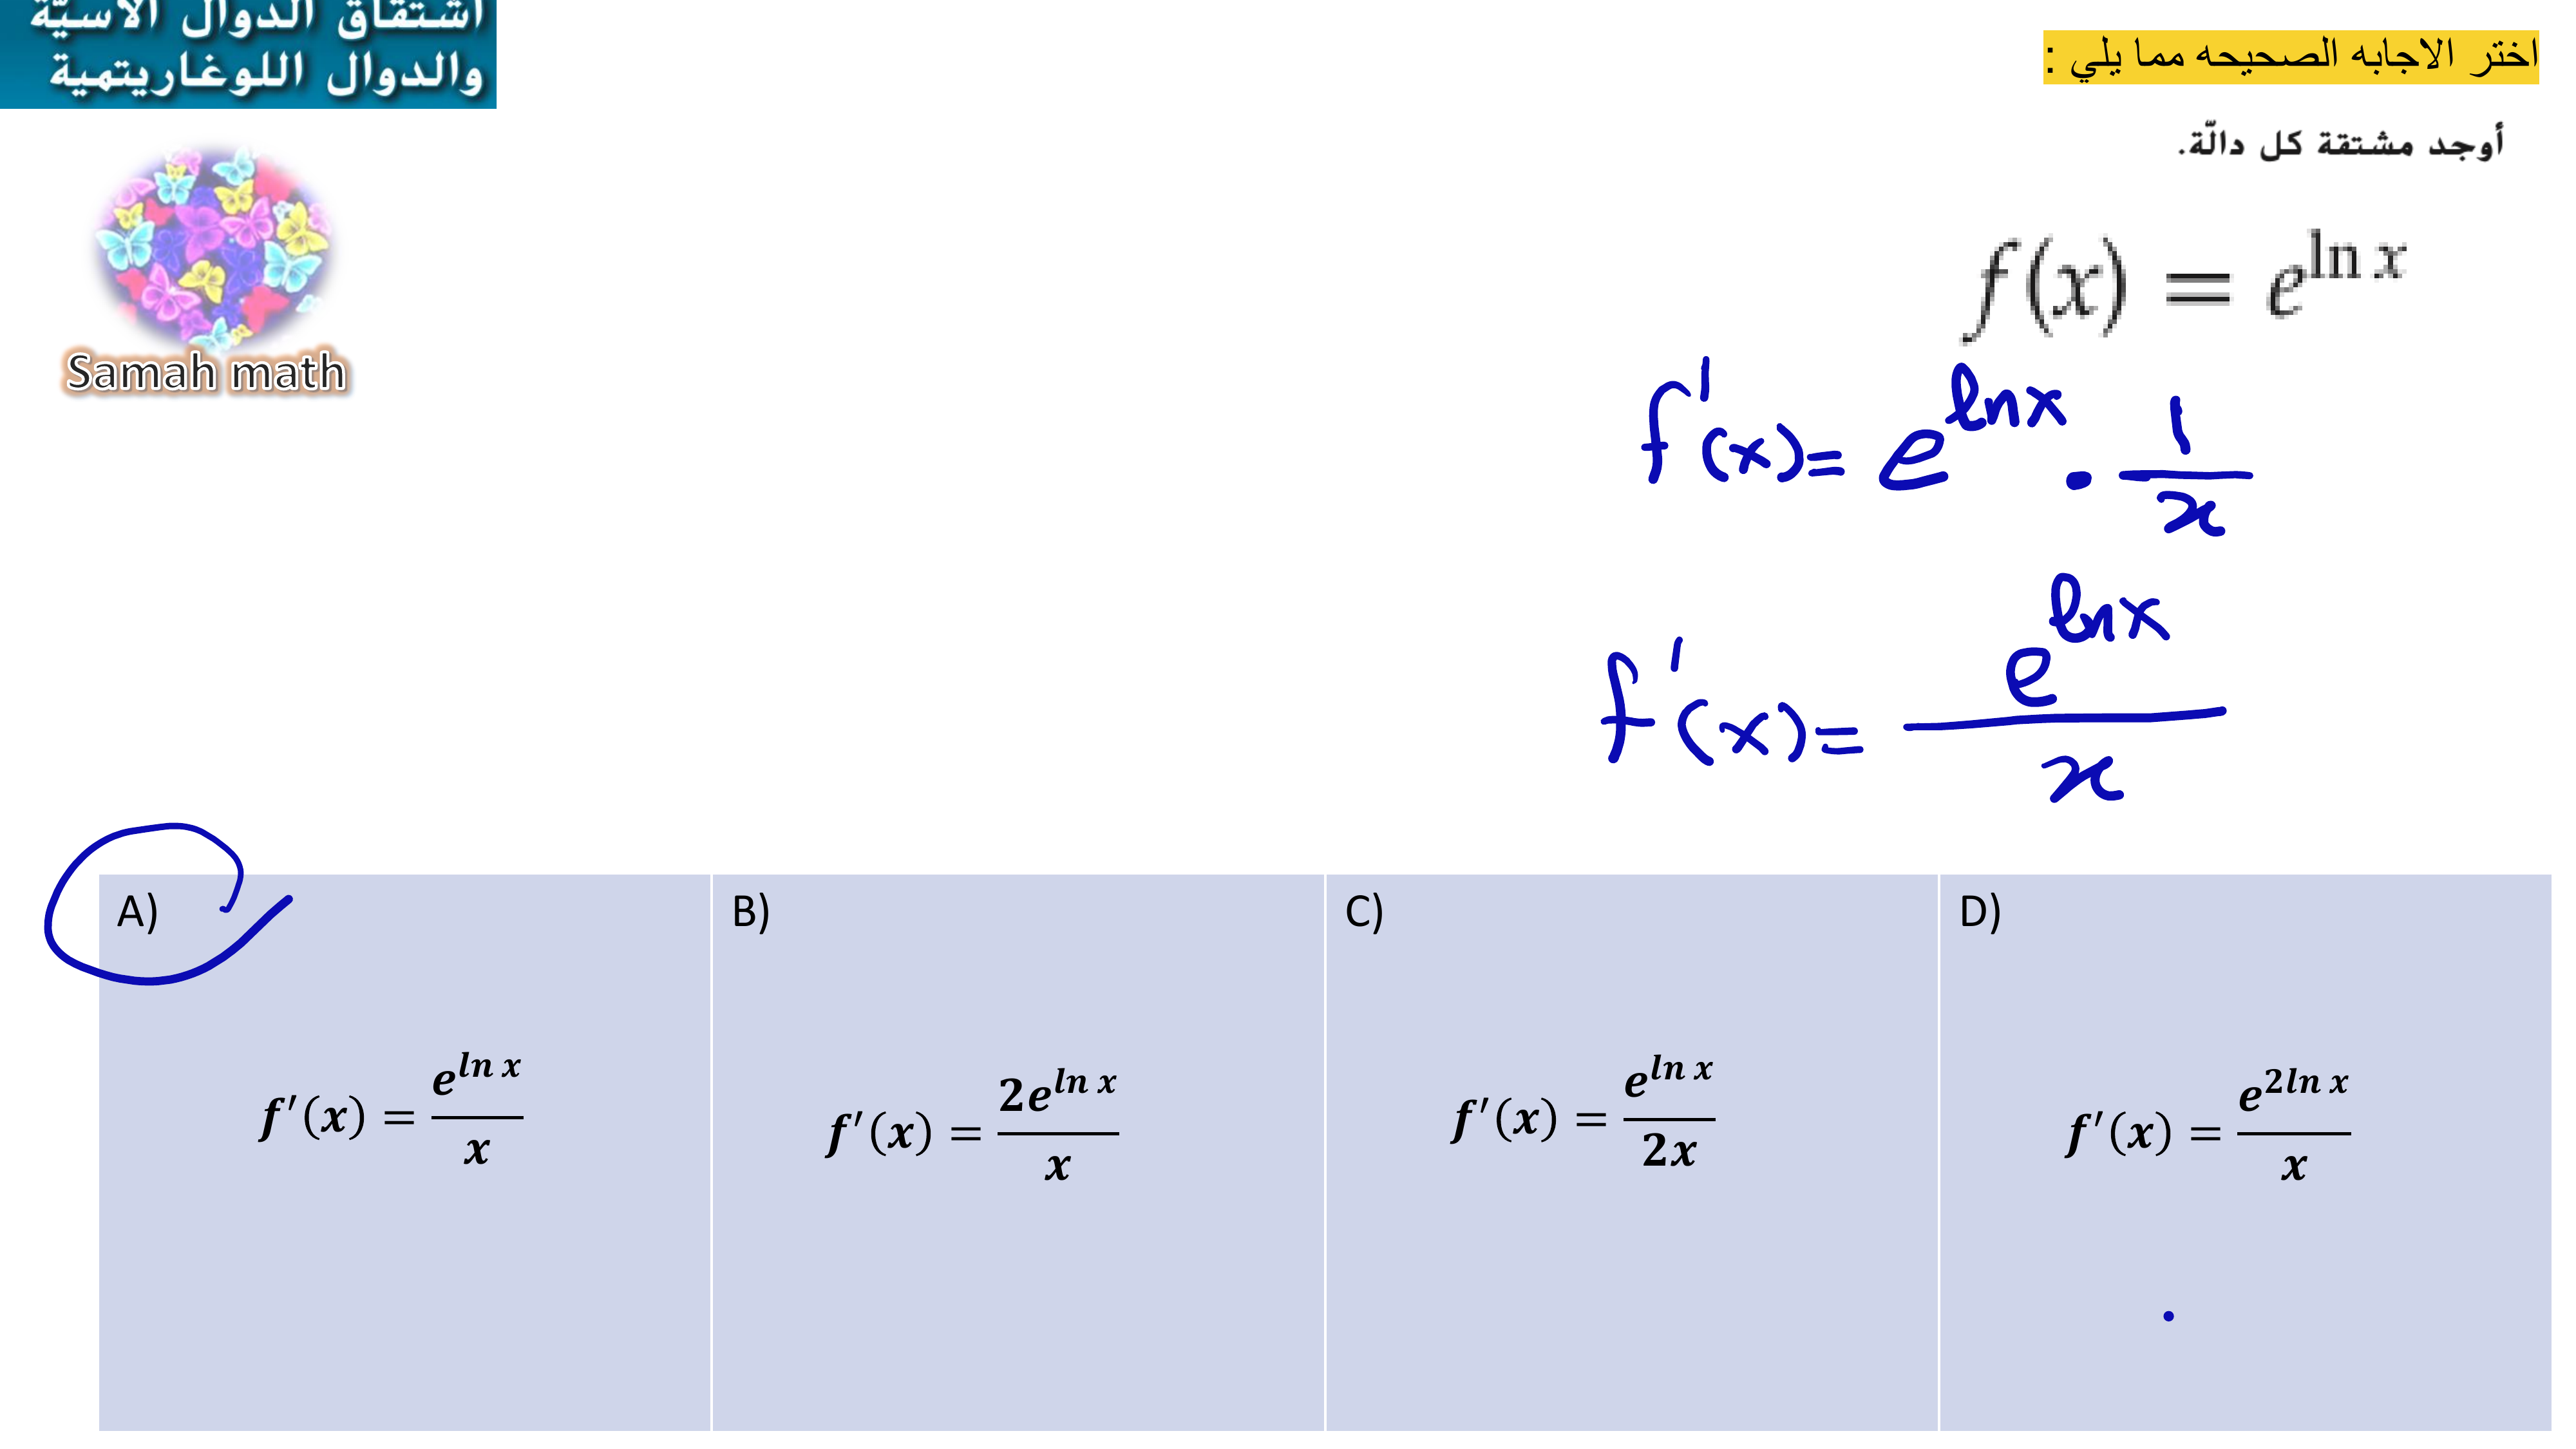 اشتقاق الدوال الأسيّة
والدوال اللوغاريتمية
اختر الاجابه الصحيحه مما يلي :
أوجد مشتقة كل دالّة.
f(x) = e^{ln x}
Samah math
f'(x) = e^{ln x} · 1/x
f'(x) = e^{ln x}/x
A)
f'(x) = e^{ln x}/x
B)
f'(x) = 2e^{ln x}/x
C)
f'(x) = e^{ln x}/2x
D)
f'(x) = e^{2ln x}/x